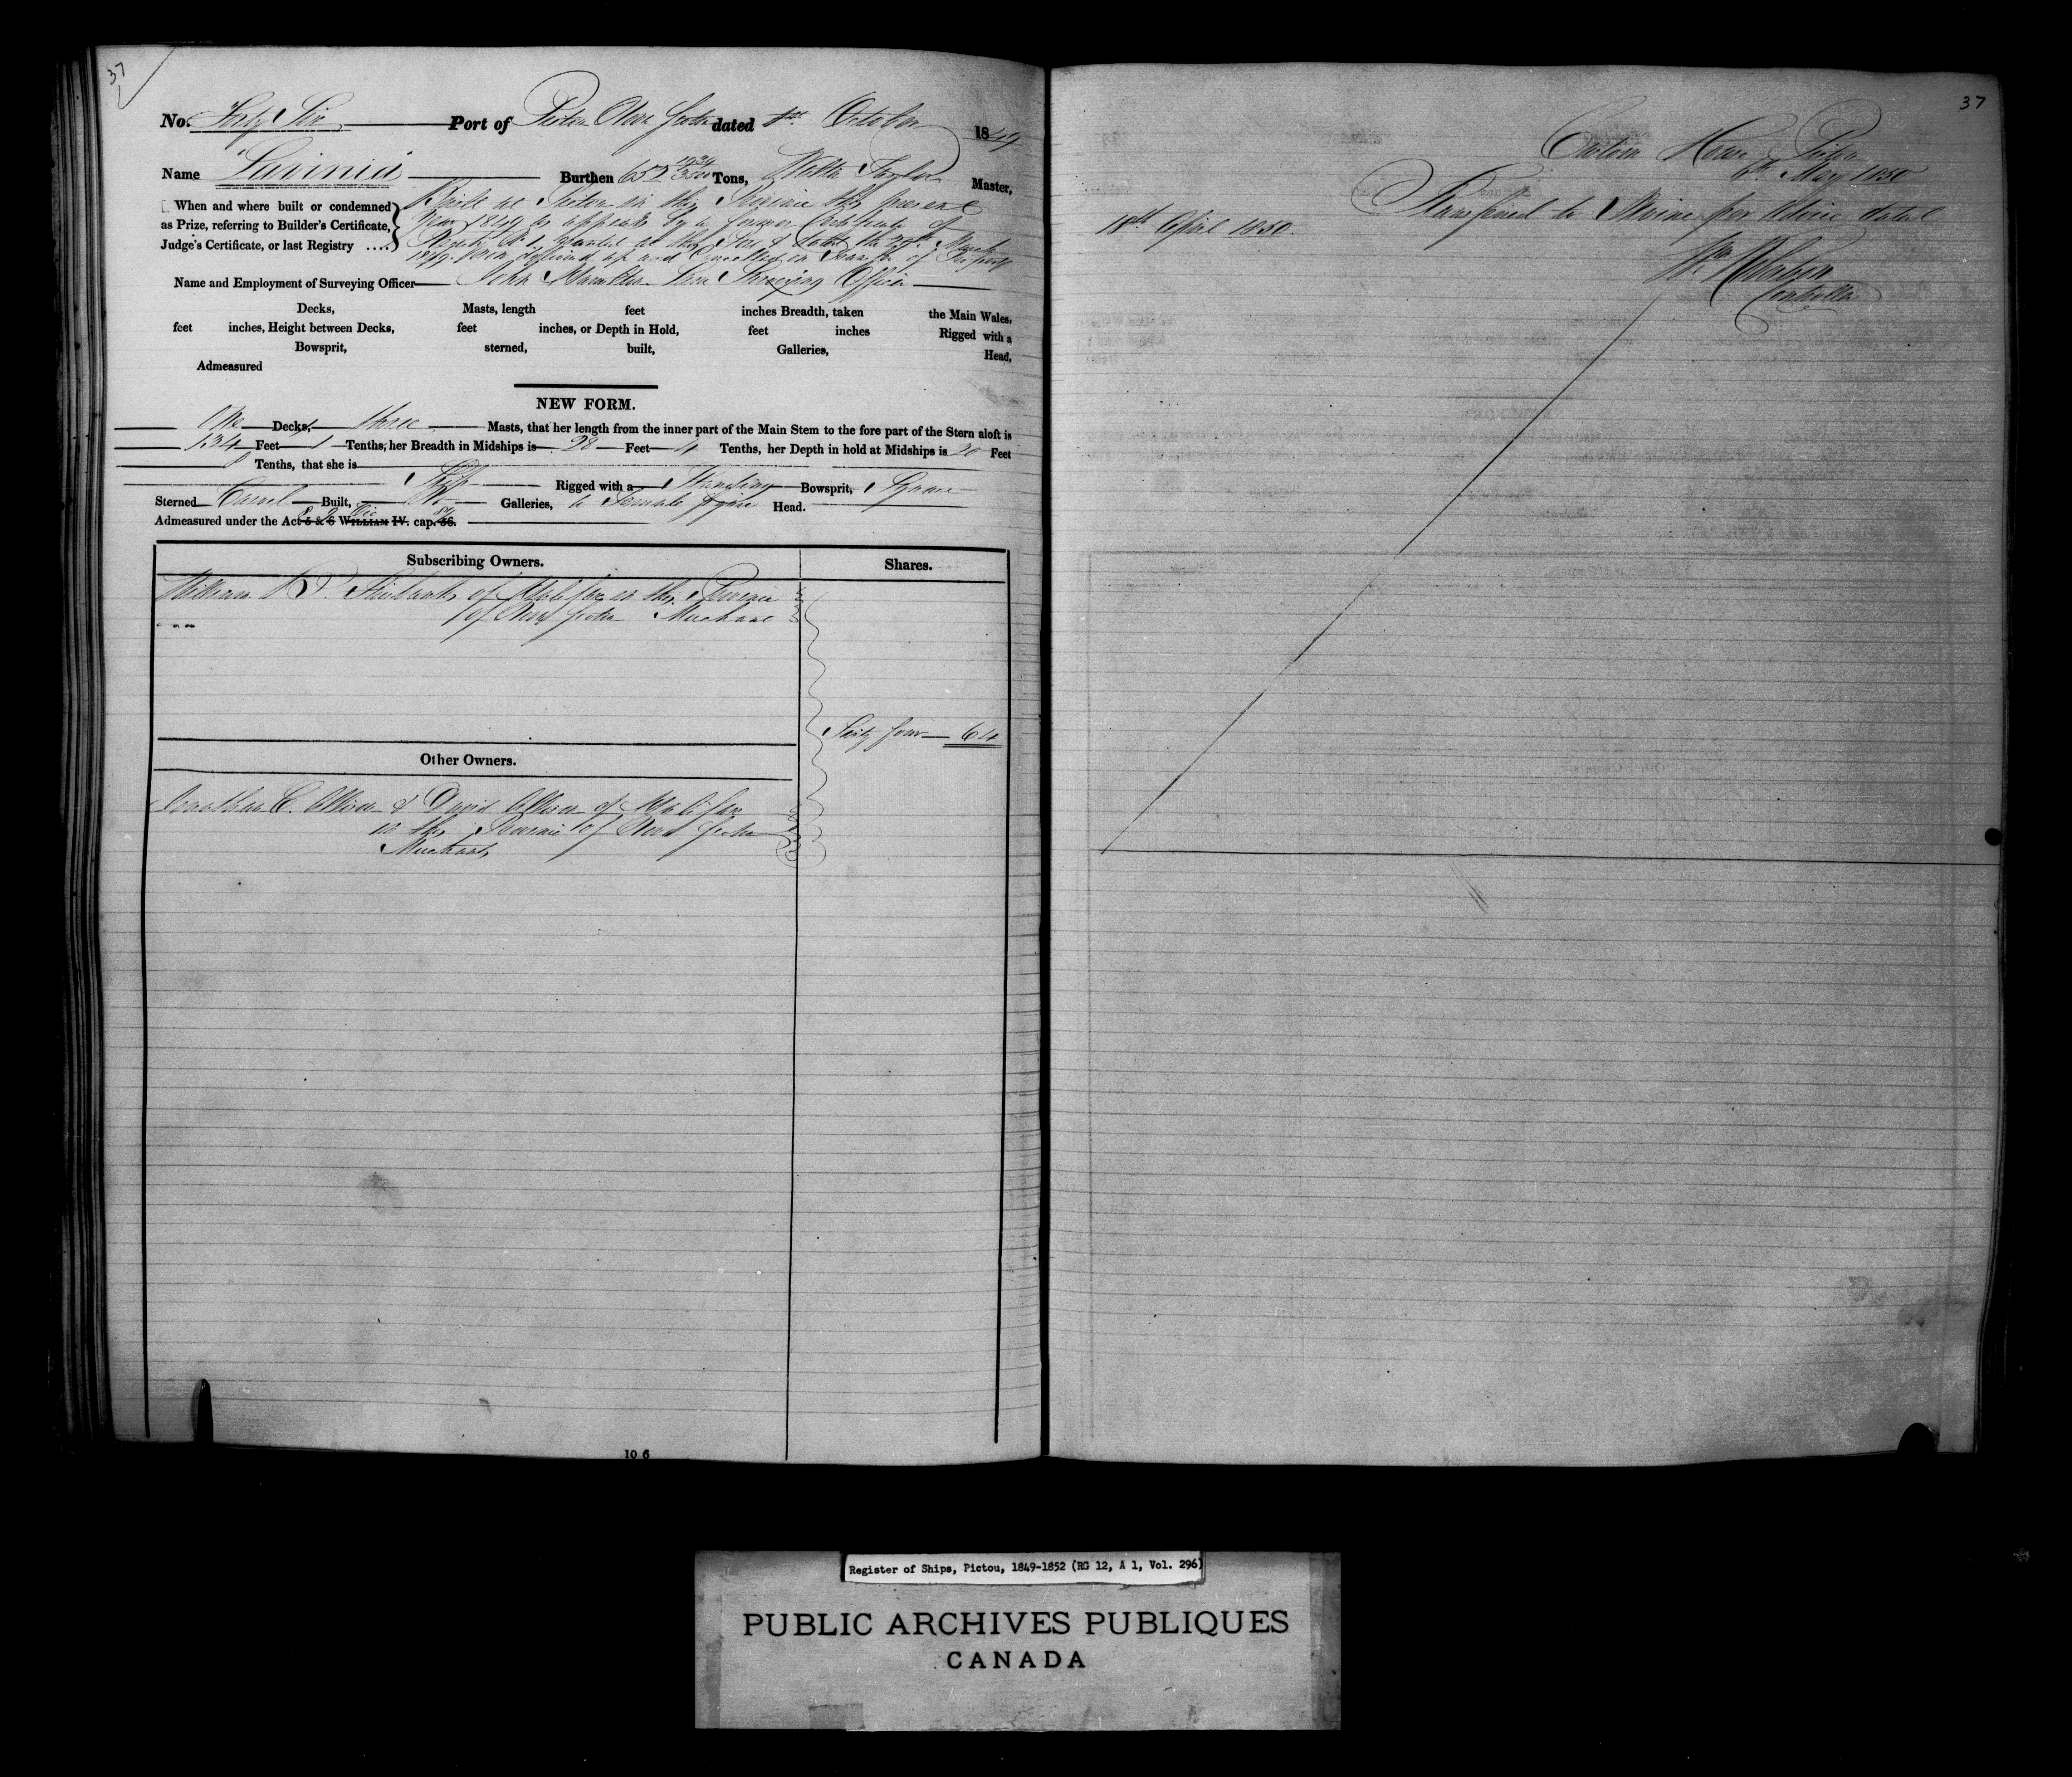 37
No. Forty Six Port of Pictou Nova Scotia dated 1st October 1849
Name "Lavinia" Burthen 655 Tons, Walter Taylor Master,
When and where built or condemned
as Prize, referring to Builder's Certificate,
Judge's Certificate, or last Registry ....
Built at Pictou in this Province this present
Year 1849 as appears by a former Certificate of
Registry No. granted at this Port & dated the 29th March
1849. Now delivered up and Cancelled on Transfer of Property
Name and Employment of Surveying Officer John Surveying Officer
Decks, Masts, length feet inches Breadth, taken the Main Wales.
feet inches, Height between Decks, feet inches, or Depth in Hold, feet inches Rigged with a
Bowsprit, sterned, built, Galleries, Head,
Admeasured
NEW FORM.
One Decks, three Masts, that her length from the inner part of the Main Stem to the fore part of the Stern aloft is
134 Feet 1 Tenths, her Breadth in Midships is 28 Feet 4 Tenths, her Depth in hold at Midships is 20 Feet
8 Tenths, that she is
Ship Rigged with a Standing Bowsprit, Square
Sterned Carvel Built, No Galleries, a Female figure Head.
Admeasured under the Act 5 & 6 WILLIAM IV. cap. 56.
Subscribing Owners. Shares.
William of Halifax in the Province
of Nova Scotia Merchant
Sixty four 64
Other Owners.
Jonathan C. Allison & David Allison of Halifax
in the Province of Nova Scotia
Merchants
10 6
37
Custom House Pictou
6th May 1850
Transferred to per Advice dated
18th April 1850.
Wm Robertson
Controller
Register of Ships, Pictou, 1849-1852 (RG 12, A 1, Vol. 296)
PUBLIC ARCHIVES PUBLIQUES
CANADA